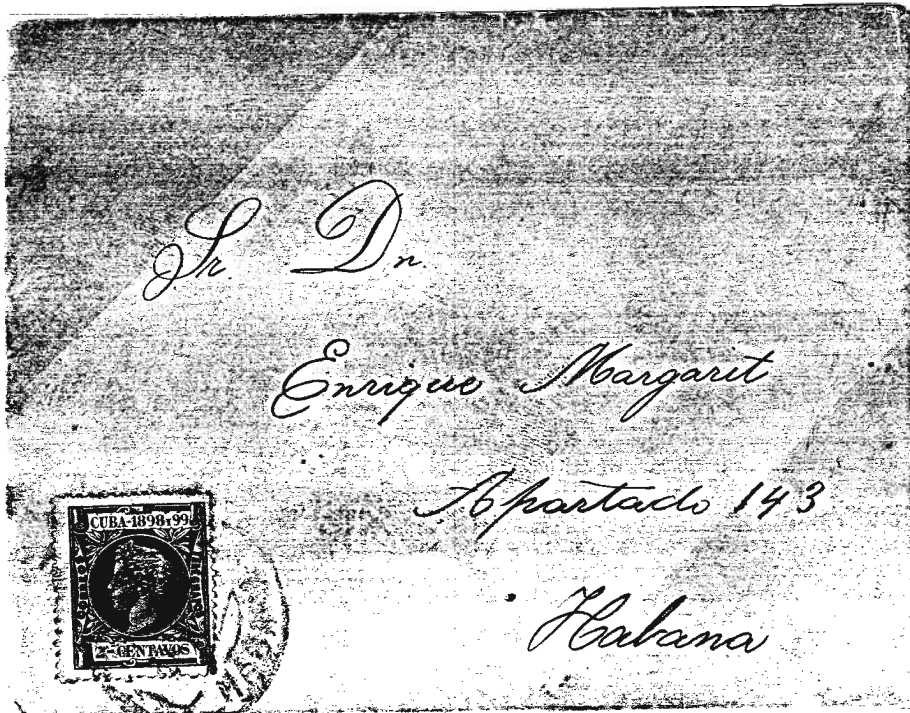 Sr. Dn.
Enrique Margarit
Apartado 143
Habana
CUBA-1898 y 99
2 CENTAVOS